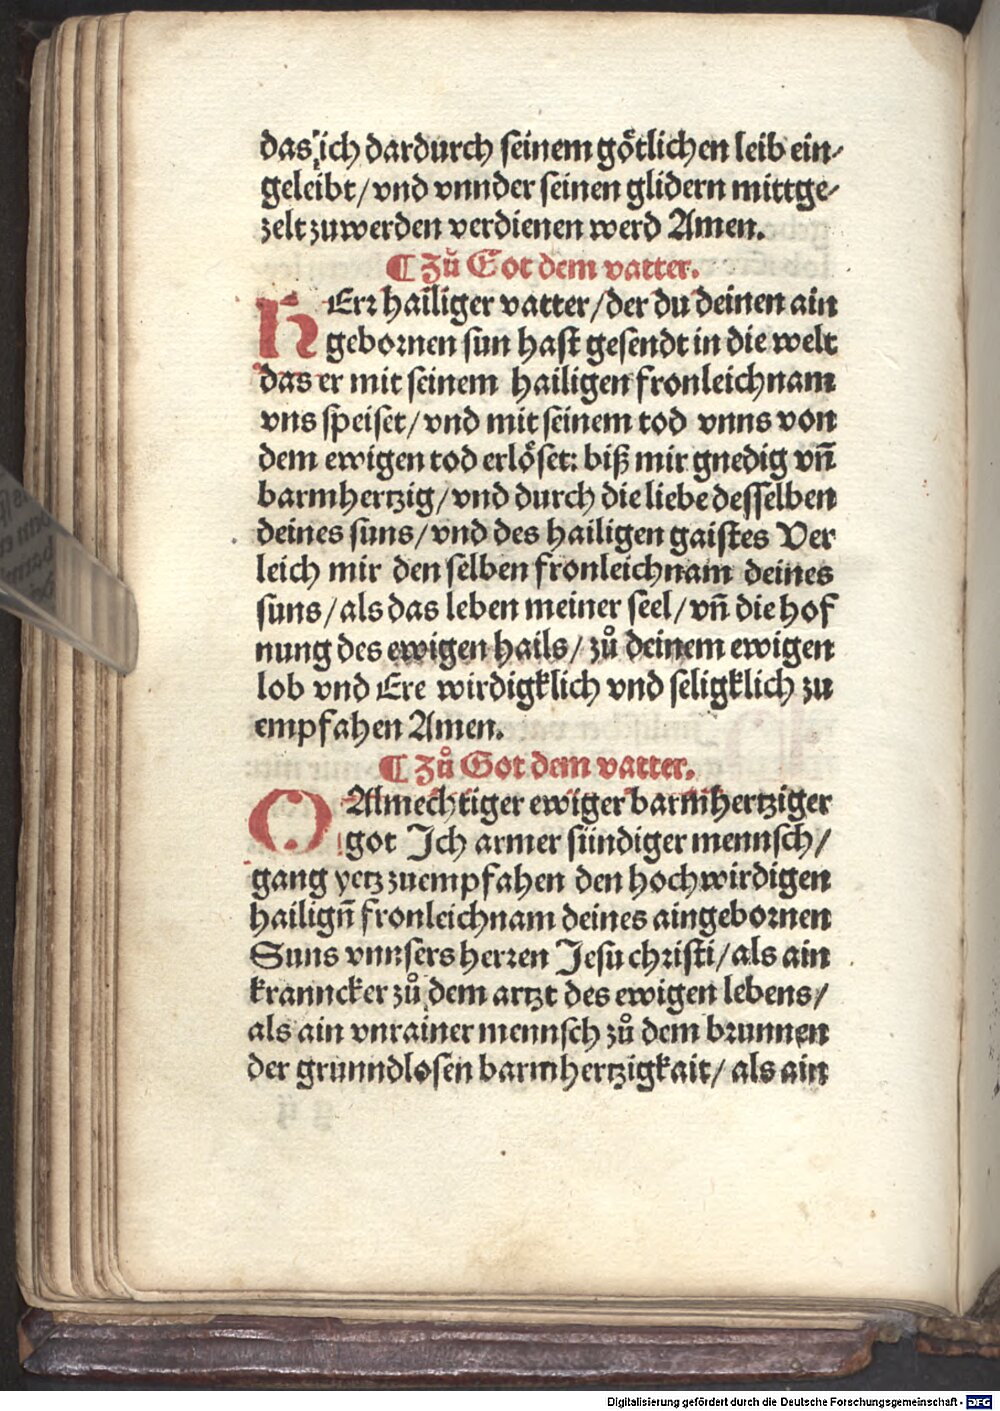 das ich dardurch seinem götlichen leib ein⸗
geleibt/ vnd vnnder seinen glidern mittge⸗
zelt zuwerden verdienen werd Amen.
¶ Zů Got dem vatter.
HErr hailiger vatter/der du deinen ain
gebornen sun hast gesendt in die welt
das er mit seinem hailigen fronleichnam
vns speiset/ vnd mit seinem tod vnns von
dem ewigen tod erlöset: biß mir gnedig vn̄
barmhertzig/ vnd durch die liebe desselben
deines suns/ vnd des hailigen gaistes Ver
leich mir den selben fronleichnam deines
suns/ als das leben meiner seel/ vn̄ die hof
nung des ewigen hails/ zů deinem ewigen
lob vnd Ere wirdigklich vnd seligklich zu
empfahen Amen.
¶ Zů Got dem vatter.
O Almechtiger ewiger barmhertziger
got Ich armer sündiger mennsch/
gang yetz zuempfahen den hochwirdigen
hailign̄ fronleichnam deines aingebornen
Suns vnnsers herren Jesu christi/ als ain
kranncker zů dem artzt des ewigen lebens/
als ain vnrainer mennsch zů dem brunnen
der grunndlosen barmhertzigkait/ als ain
Digitalisierung gefördert durch die Deutsche Forschungsgemeinschaft - DFG